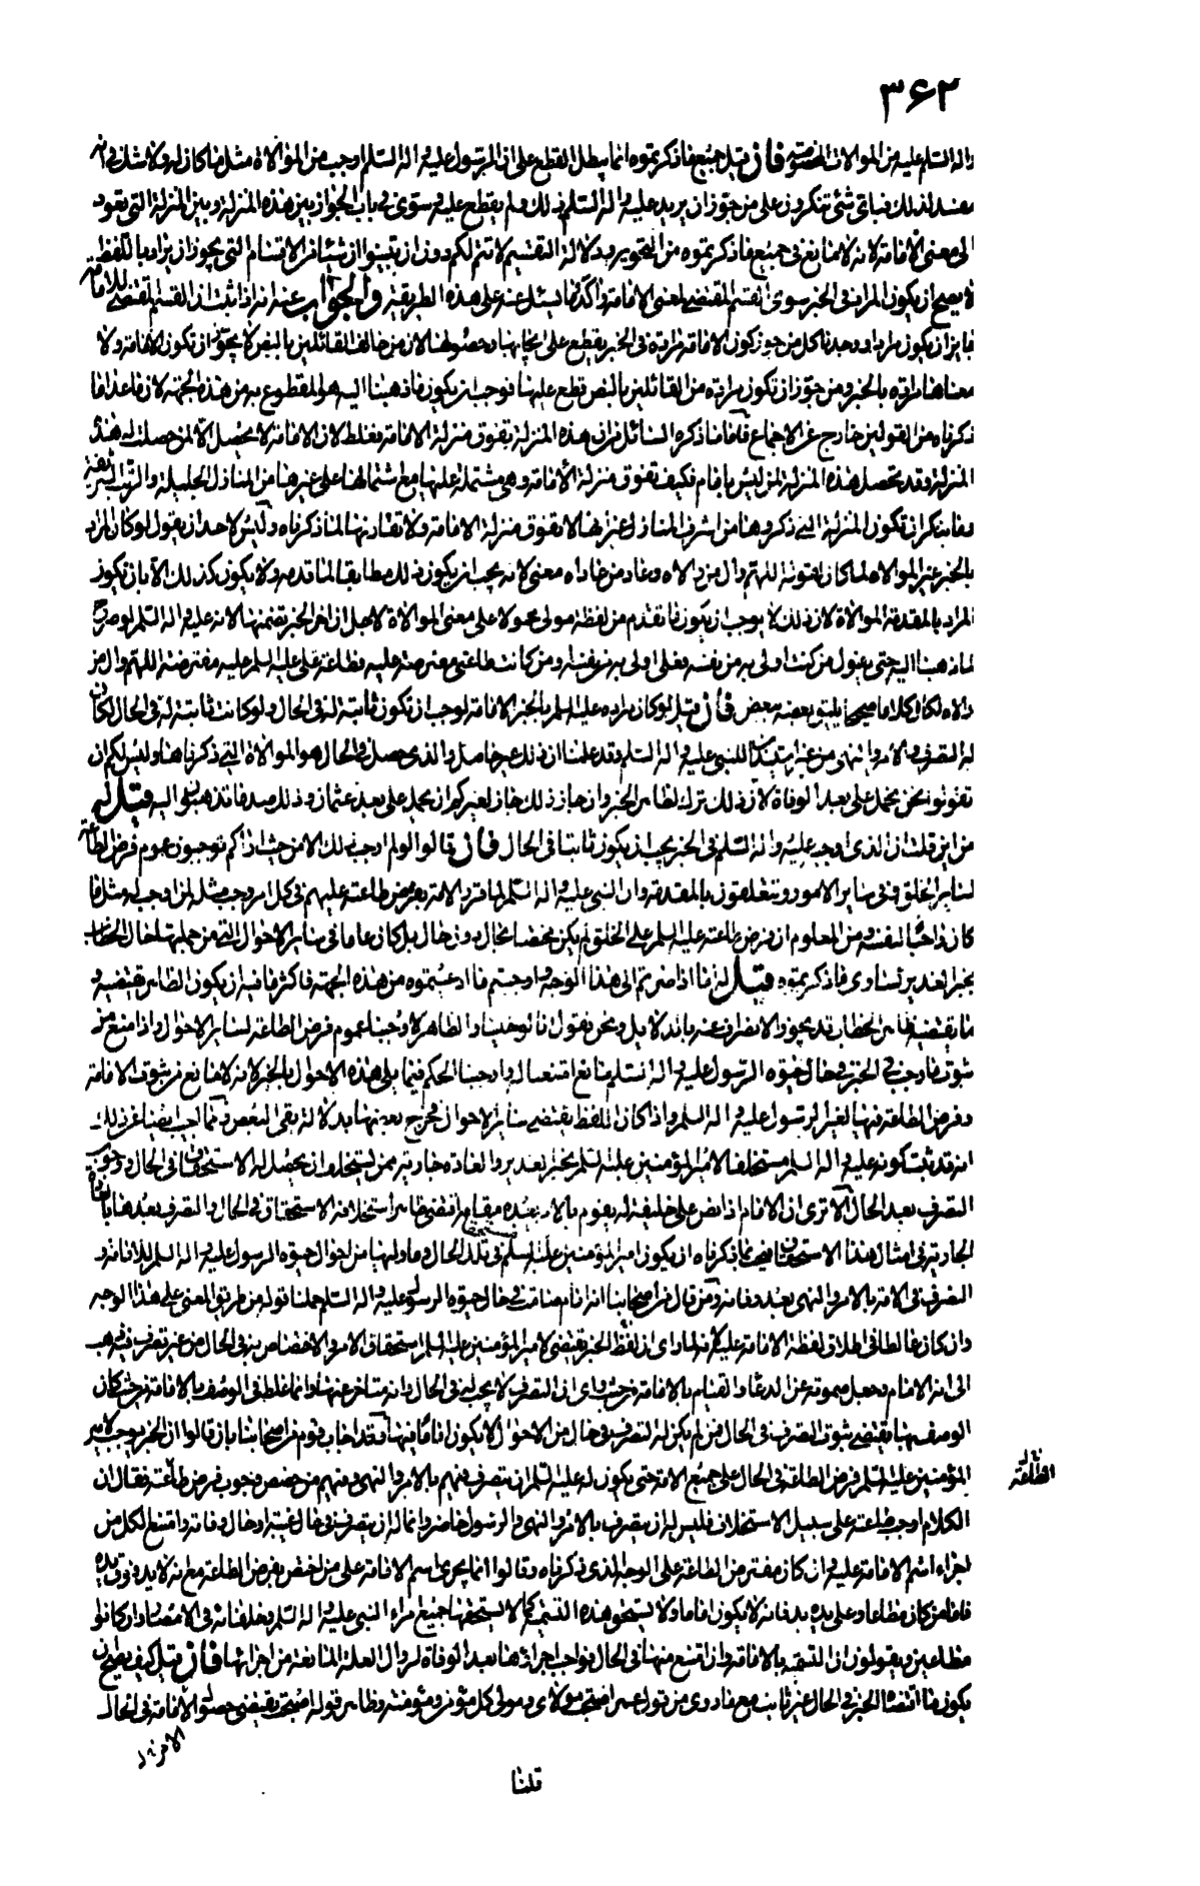 ٣۶٢
واله السلم عليه من الموالات المخصوصة فان قيل جميع ما ذكرتموه انما يبطل القطع على ان الرسول عليه واله السلم اوجب من الموالاة مثل ما كان له ولا شك فى انه
مفسد لذلك فباى شئ تنكرون على من جوز ان يريد عليه واله السلم ذلك ولم يقطع عليه وسوى فى باب الجواز بين هذه المنزلة وبين المنزلة التى يعود
الى معنى الامامة لانه لا مانع فى جميع ما ذكرتموه من التجويز ودلالة التقسيم لا تتم لكم دون ان تبينوا ان شيئا من الاقسام التى يجوز ان يراد باللفظ
لا يصح ان يكون المراد فى الخبر سوى القسم المقتضى لمعنى الامامة والجواب عنه انه اذا ثبت ان القسم المقتضى للامامة
جايز ان يكون مرادا ووجدنا كل من جوز كون الامامة مرادة فى الخبر يقطع على ايجابها وحصولها لان من خالف القائلين بالنص لا يجوز ان تكون الامامة ولا
معناها مرادة بالخبر ومن جوز ان تكون مرادة من القائلين بالنص قطع عليها فوجب ان يكون ما ذهبنا اليه هو المقطوع به من هذه الجهة لان ما عدا ما
ذكرناه من القولين خارج عن الاجماع فاما ما ذكره السائل من ان هذه المنزلة تفوق منزلة الامامة فغلط لان الامامة لا يحصل الا لمن حصلت له هذه
المنزلة وقد تحصل هذه المنزلة لمن ليس بامام فكيف تفوق منزلة الامامة وهى مشتملة عليها مع اشتمالها على غيرها من المنازل الجليلة والرتب الشريفة
وما ننكر ان تكون المنزلة التى ذكروها من اشرف المنازل غير انها لا تفوق منزلة الامامة ولا تقاربها لما ذكرناه وليس لاحد ان يقول لو كان المراد
بالخبر غير الموالاة لما كان لقوله اللهم وال من والاه وعاد من عاداه معنى لانه يجب ان يكون ذلك مطابقا لما قدمه ولا يكون كذلك الا بان تكون
المراد بالمقدمة الموالاة لان ذلك لا يوجب ان يكون ما تقدم من لفظة مولى محمولا على معنى الموالاة لاجل ان اخر الخبر تضمنها لانه عليه واله السلم لو صرح
لما ذهبنا اليه حتى يقول من كنت اولى به من نفسه فعلى اولى به من نفسه ومن كانت طاعتى مفترضة عليه فطاعة على عليه السلم عليه مفترضة اللهم وال من
والاه لكان كلاما صحيحا يليق بعضه ببعض فان قيل لو كان مراده عليه السلم بالخبر الامامة لوجب ان تكون ثابتة له فى الحال ولو كانت ثابتة له فى الحال لكان
له التصرف بالامر والنهى من غير للنبى عليه واله السلم وقد علمنا ان ذلك غير حاصل والذى حصل فى الحال هو الموالاة التى ذكرناها وليس لكم ان
تقولوا نحن نحمل على بعد الوفاة لان ذلك ترك لظاهر الخبر وان جاز ذلك جاز لغيركم ان يحمله على بعد عثمان وذلك ضد ما تذهبون اليه قيل له
من اين قلت ان الذى اوجب عليه واله السلم فى الخبر يجب ان يكون ثابتا فى الحال فان قالوا لو لم اوجب ذلك الا من حيث اذا كم توجبون عموم فرض الطاعة
لسائر الخلق وفى سائر الامور وتتعلقون بالمقدمة وان النبى عليه واله السلم لما قرر الامة بفرض طاعته عليهم فى كل امر وجب مثله لمن اوجب له مثل ما
كان واجبا لنفسه ومن المعلوم ان فرض طاعته عليه السلم على الخلق لم يكن مختصا بحال دون حال بل كان عاما فى سائر الاحوال التى من جملتها حال الخطاب
بخبر الغدير ذكرتموه قيل له انا اذا صرتم الى هذا الوجه واوجبتم ما ادعيتموه من هذه الجهة فاكثر ما فيه ان يكون الظاهر يقتضيه و
ما يقتضيه ظاهر الخطاب قد يجوز الانصراف عنه بالدلايل ونحن نقول انا لو خلينا والظاهر لاوجبنا عموم فرض الطاعة لسائر الاحوال واذا منع من
ثبوت ما وجب فى الخبر فى حال حيوة الرسول عليه واله السلم مانع امتنعنا له واوجبنا الحكم فيما يلى هذه الاحوال بالخبر لانه لا مانع من ثبوت الامامة
وفرض الطاعة فيها لغير الرسول عليه واله السلم واذا كان اللفظ يقتضى سائر الاحوال فخرج بعضها بدلالة بقى البعض ومما اجيب به عن ذلك
انه قد ثبت كونه عليه واله السلم مستخلفا لامير المؤمنين عليه السلم بخبر الغدير والعادة جارية بمن يستخلف ان يحصل له الاستحقاق فى الحال ووجوب
التصرف بعد الحال الا ترى ان الامام اذا نص على خليفة له يقوم بالامر بعده مقامه اقتضى ظاهر استخلافه الاستحقاق فى الحال والتصرف بعدها
الجارية فى امثال هذا الاستحقاق ذكرناه ان يكون امير المؤمنين عليه السلم فى تلك الحال وما وليها من احوال حيوة الرسول عليه واله السلم للامامة و
التصرف فى الامة بالامر والنهى بعد وفاته ومن قال من اصحابنا انه امام صامت فى حال حيوة الرسول عليه واله السلم حملنا قوله من طريق المعنى على هذا الوجه
وان كان غالطا فى اطلاق لفظة الامامة عليه لانه لما راى ان لفظ الخبر يقتضى لامير المؤمنين عليه السلم استحقاق الامر والاختصاص به فى الحال من غير تصرف ذهب
الى انه الامام وجعل صموته عن الدعاء والقيام بالامامة من حيث راى ان التصرف لا يجب له فى الحال وانه متاخر عنها وانما غلط فى الوصف بالامامة من حيث كان
الوصف بها يقتضى ثبوت التصرف فى الحال فمن لم يكن له التصرف فى حال من الاحوال لا يكون اماما فيها وقد اجاب قوم من اصحابنا بان قالوا ان الخبر يوجب لامير
المؤمنين عليه السلم فرض الطاعة فى الحال على جميع الامة حتى يكون له عليه السلم ان يتصرف فيهم بالامر والنهى ومنهم من خصص وجوب فرض طاعته فقال ان
الكلام اوجب طاعته على سبيل الاستخلاف فليس له ان يتصرف بالامر والنهى والرسول حاضر وانما له ان يتصرف فى حال غيبته او حال وفاته وامتنع الكل من
اجراء اسم الامامة عليه وان كان مفترض الطاعة على الوجه الذى ذكرناه وقالوا انما يجرى اسم الامامة على من اختص بفرض الطاعة مع انه لا يد فوق يده
فاما من كان مطاعا وعلى يده يد فانه لا يكون اماما ولا يستحق هذه التسمية كما لا يستحقها جميع امراء النبى عليه واله السلم وخلفائه فى الامصار وان كانوا
مطاعين ويقولون ان التسمية بالامامة وان امتنع منها فى الحال فواجب اجراؤها بعد الوفاة لزوال العلة المانعة من اجرائها فان قيل كيف يصح ان
يكون ما اقتضاه الخبر فى الحال غير ثابت مع ما روى من قول عمر اصبحت مولاى ومولى كل مؤمن ومؤمنة وظاهر قوله اصبحت يقتضى حصول الامامة فى الحال
الطاعة
قلنا